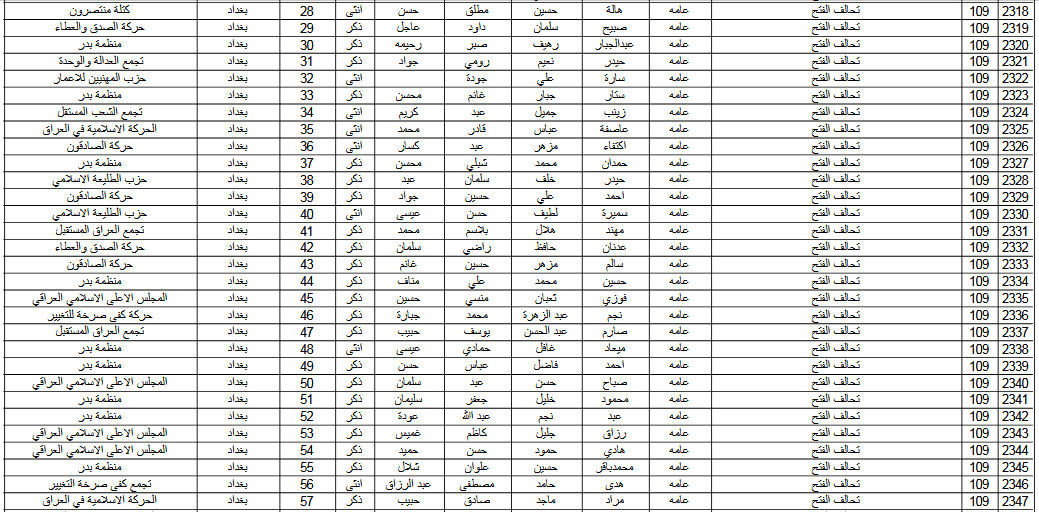 2318 109 تحالف الفتح عامه هالة حسين مطلق حسن انثى 28 بغداد كتلة منتصرون
2319 109 تحالف الفتح عامه صبيح سلمان داود عاجل ذكر 29 بغداد حركة الصدق والعطاء
2320 109 تحالف الفتح عامه عبدالجبار رهيف صبر رحيمه ذكر 30 بغداد منظمة بدر
2321 109 تحالف الفتح عامه حيدر نعيم رومي جواد ذكر 31 بغداد تجمع العدالة والوحدة
2322 109 تحالف الفتح عامه سارة علي جودة انثى 32 بغداد حزب المهنيين للاعمار
2323 109 تحالف الفتح عامه ستار جبار غانم محسن ذكر 33 بغداد منظمة بدر
2324 109 تحالف الفتح عامه زينب جميل عبد كريم انثى 34 بغداد تجمع الشعب المستقل
2325 109 تحالف الفتح عامه عاصفة عباس قادر محمد انثى 35 بغداد الحركة الاسلامية في العراق
2326 109 تحالف الفتح عامه اكتفاء مزهر عبد كسار انثى 36 بغداد حركة الصادقون
2327 109 تحالف الفتح عامه حمدان محمد شبلي محسن ذكر 37 بغداد منظمة بدر
2328 109 تحالف الفتح عامه حيدر خلف سلمان عبد ذكر 38 بغداد حزب الطليعة الاسلامي
2329 109 تحالف الفتح عامه احمد علي حسين جواد ذكر 39 بغداد حركة الصادقون
2330 109 تحالف الفتح عامه سميرة لطيف حسن عيسى انثى 40 بغداد حزب الطليعة الاسلامي
2331 109 تحالف الفتح عامه مهند هلال بلاسم محمد ذكر 41 بغداد تجمع العراق المستقبل
2332 109 تحالف الفتح عامه عدنان حافظ راضي سلمان ذكر 42 بغداد حركة الصدق والعطاء
2333 109 تحالف الفتح عامه سالم مزهر حسين غانم ذكر 43 بغداد حركة الصادقون
2334 109 تحالف الفتح عامه حسين محمد علي مناف ذكر 44 بغداد منظمة بدر
2335 109 تحالف الفتح عامه فوزي ثعبان منسي حسين ذكر 45 بغداد المجلس الاعلى الاسلامي العراقي
2336 109 تحالف الفتح عامه نجم عبد الزهرة محمد جبارة ذكر 46 بغداد حركة كفى صرخة للتغيير
2337 109 تحالف الفتح عامه صارم عبد الحسن يوسف حبيب ذكر 47 بغداد تجمع العراق المستقبل
2338 109 تحالف الفتح عامه ميعاد غافل حمادي عيسى انثى 48 بغداد منظمة بدر
2339 109 تحالف الفتح عامه احمد فاضل عباس حسن ذكر 49 بغداد منظمة بدر
2340 109 تحالف الفتح عامه صباح حسن عبد سلمان ذكر 50 بغداد المجلس الاعلى الاسلامي العراقي
2341 109 تحالف الفتح عامه محمود خليل جعفر سليمان ذكر 51 بغداد منظمة بدر
2342 109 تحالف الفتح عامه عبد نجم عبد الله عودة ذكر 52 بغداد منظمة بدر
2343 109 تحالف الفتح عامه رزاق جليل كاظم غميس ذكر 53 بغداد المجلس الاعلى الاسلامي العراقي
2344 109 تحالف الفتح عامه هادي حمود حسن حميد ذكر 54 بغداد المجلس الاعلى الاسلامي العراقي
2345 109 تحالف الفتح عامه محمدباقر حسين علوان شلال ذكر 55 بغداد منظمة بدر
2346 109 تحالف الفتح عامه هدى حامد مصطفى عبد الرزاق انثى 56 بغداد تجمع كفى صرخة التغيير
2347 109 تحالف الفتح عامه مراد ماجد صادق حبيب ذكر 57 بغداد الحركة الاسلامية في العراق